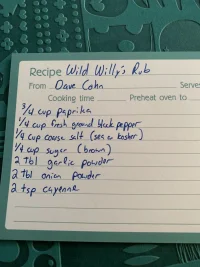 Recipe Wild Willy's Rub
From Dave Cohn Serves
Cooking time Preheat oven to
3/4 cup paprika
1/4 cup fresh ground black pepper
1/4 cup coarse salt (sea or kosher)
1/4 cup sugar (brown)
2 Tbl garlic powder
2 Tbl onion powder
2 tsp cayenne